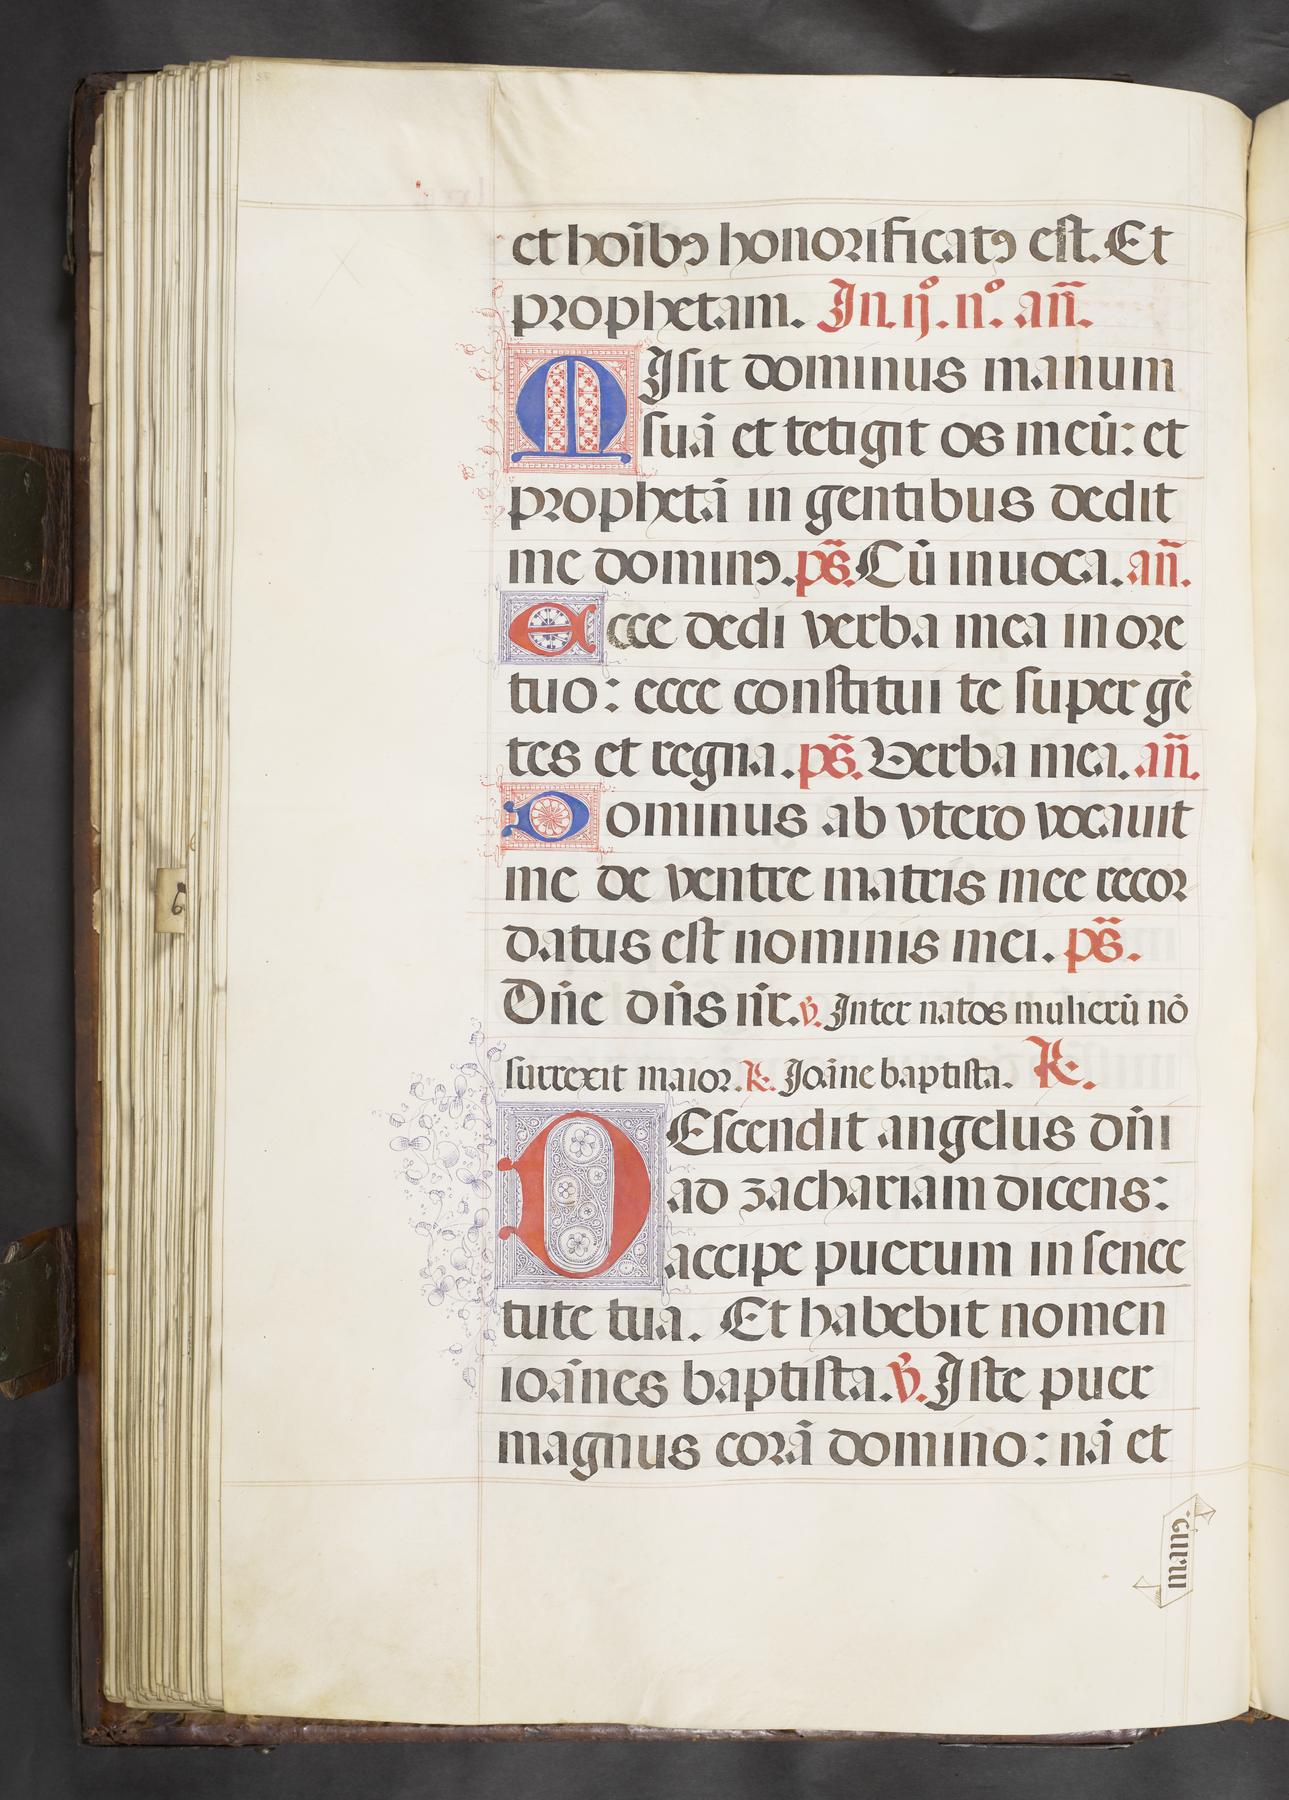 et hoı̄bꝰ honorificatꝰ est. Et
prophetam. In .ijº. nº. añ.
MIsit dominus manum
suā et tetigit os meū: et
prophetā in gentibus dedit
me dominꝰ. ps̄. Cū inuoca. añ.
Ecce dedi verba mea in ore
tuo: ecce constitui te super gē
tes et regna. ps̄. Verba mea. añ.
Dominus ab vtero vocauit
me de ventre matris mee recor
datus est nominis mei. ps̄.
Dñe dñs nr̄. ℣. Inter natos mulierū nō
surrexit maior. ℟. Joāne baptista. ℟.
DEscendit angelus dñi
ad zachariam dicens:
accipe puerum in senec
tute tua. Et habebit nomen
ioānes baptista. ℣. Iste puer
magnus corā domino: nā et
6